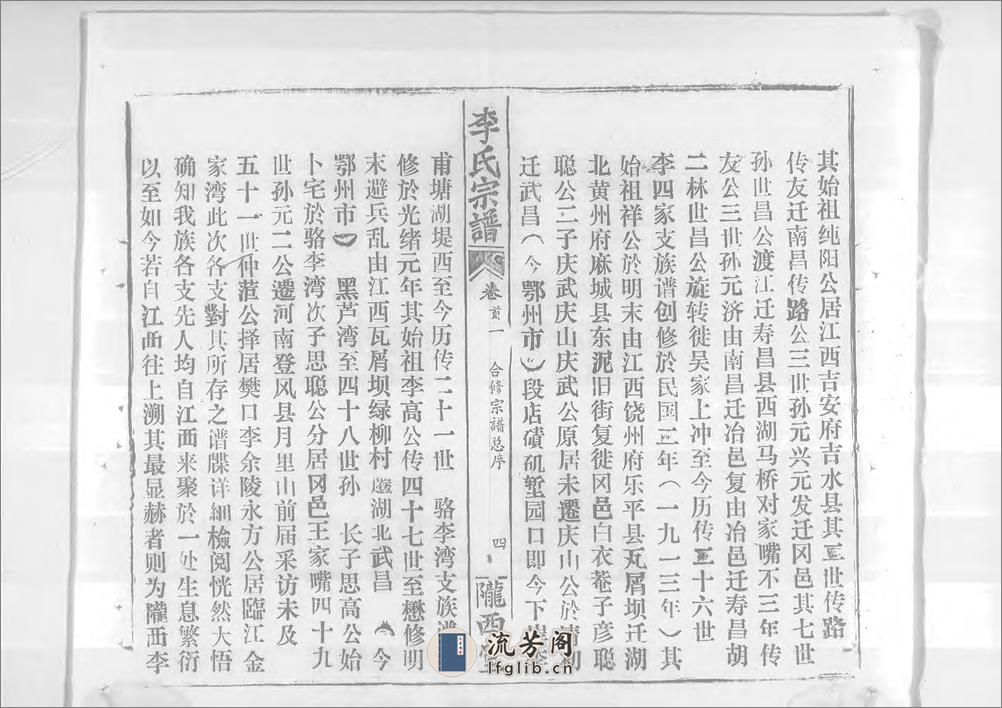 其始祖纯阳公居江西吉安府吉水县其三世传路
传友迁南昌传路公三世孙元兴元发迁冈邑其七世
孙世昌公渡江迁寿昌县西湖马桥对家嘴不三年传
友公三世孙元济由南昌迁冶邑复由冶邑迁寿昌胡
二林世昌公旋转徙吴家上冲至今历传三十六世
李四家支族谱创修於民国二年(一九一三年)其
始祖祥公於明末由江西饶州府乐平县瓦屑坝迁湖
北黄州府麻城县东泥旧街复徙冈邑白衣菴子彦聪
聪公二子庆武庆山庆武公原居未遷庆山公於清初
迁武昌(今鄂州市)段店磧矶堑园口即今下
李氏宗譜
卷首一
合修宗譜总序
四
隴西堂
甫塘湖堤西至今历传二十一世 骆李湾支族
修於光绪元年其始祖李高公传四十七世至懋修明
末避兵乱由江西瓦屑坝绿柳村遷湖北武昌(今
鄂州市) 黑芦湾至四十八世孙 长子思高公始
卜宅於骆李湾次子思聪公分居冈邑王家嘴四十九
世孙元二公遷河南登风县月里山前届采访未及
五十一世仲萓公择居樊口李余陵永方公居臨江金
家湾此次各支對其所存之谱牒详細檢閱恍然大悟
确知我族各支先人均自江西来聚於一处生息繁衍
以至如今若自江西往上溯其最显赫者则为隴西李
流芳阁
lfglib.cn